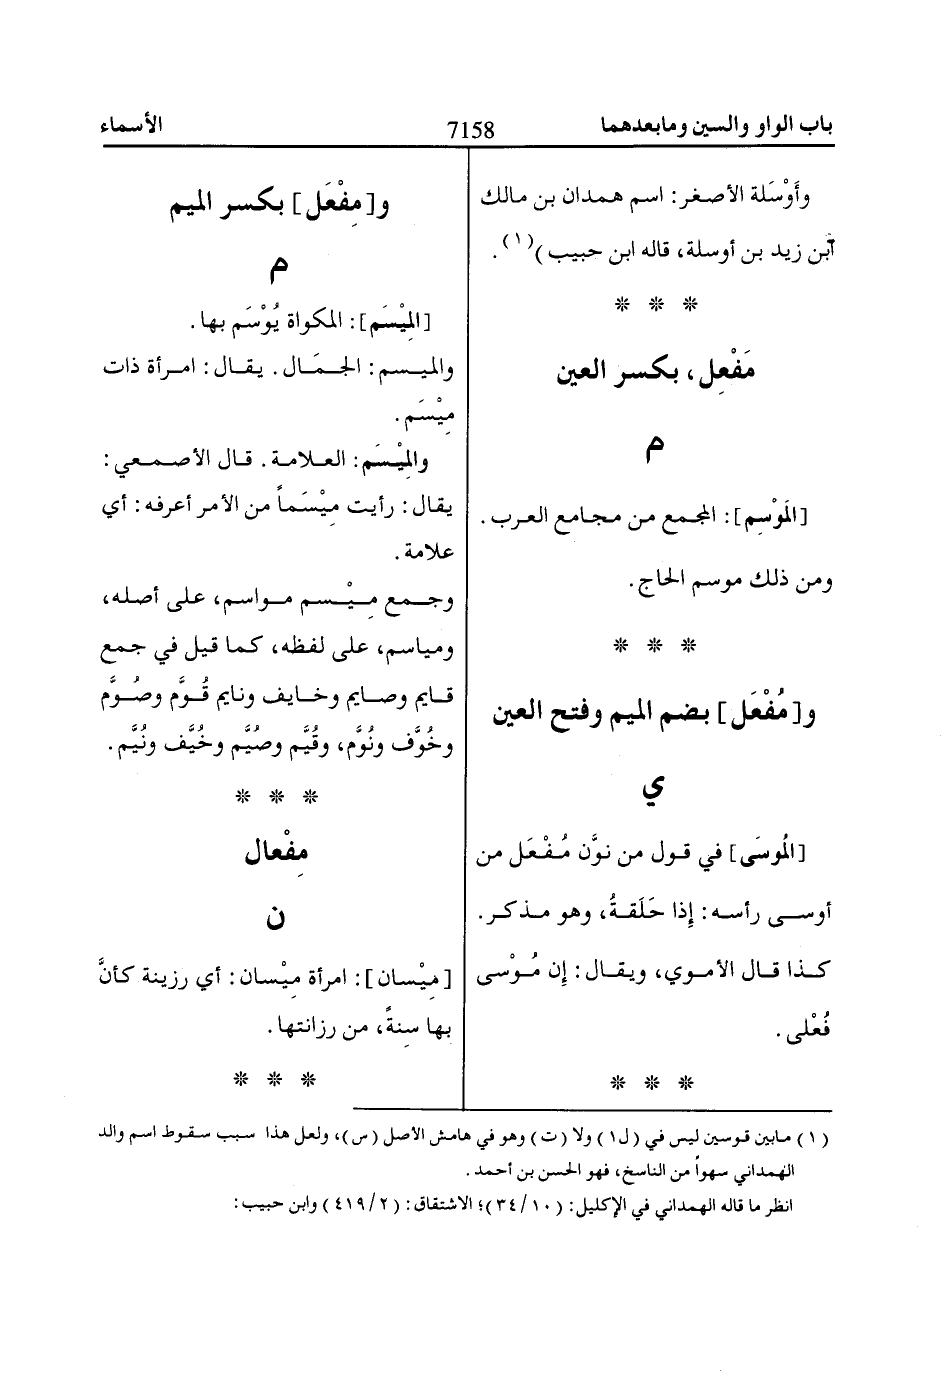 باب الواو والسين ومابعدهما
7158
الأسماء
وأَوْسَلة الأصغر: اسم همدان بن مالك
ابن زيد بن أوسلة، قاله ابن حبيب)(١).
* * *
مَفْعِل، بكسر العين
م
[المَوْسِم]: المجمع من مجامع العرب.
ومن ذلك موسم الحاج.
* * *
و[مُفْعَل] بضم الميم وفتح العين
ي
[المُوسَى] في قول من نوَّن مُفْعَل من
أوسى رأسه: إذا حَلَقهُ، وهو مذكر.
كذا قال الأموي، ويقال: إن مُوْسى
فُعْلى.
* * *
و[مِفْعَل] بكسر الميم
م
[المِيْسَم]: المكواة يُوْسَم بها.
والميسم: الجمَال. يقال: امرأة ذات
مِيْسَم.
والمِيْسَم: العلامة. قال الأصمعي:
يقال: رأيت مِيْسَماً من الأمر أعرفه: أي
علامة.
وجمع مِيْسم مواسم، على أصله،
ومياسم، على لفظه، كما قيل في جمع
قايم وصايم وخايف ونايم قُوَّم وصُوَّم
وخُوَّف ونُوَّم، وقُيَّم وصُيَّم وخُيَّف ونُيَّم.
* * *
مِفْعال
ن
[مِيْسان]: امرأة مِيْسان: أي رزينة كأنَّ
بها سِنةً، من رزانتها.
* * *
(١) مابين قوسين ليس في (ل١) ولا (ت) وهو في هامش الأصل (س)، ولعل هذا سبب سقوط اسم والد
الهمداني سهواً من الناسخ، فهو الحسن بن أحمد.
انظر ما قاله الهمداني في الإكليل: (١٠/ ٣٤)؛ الاشتقاق: (٢/ ٤١٩) وابن حبيب: